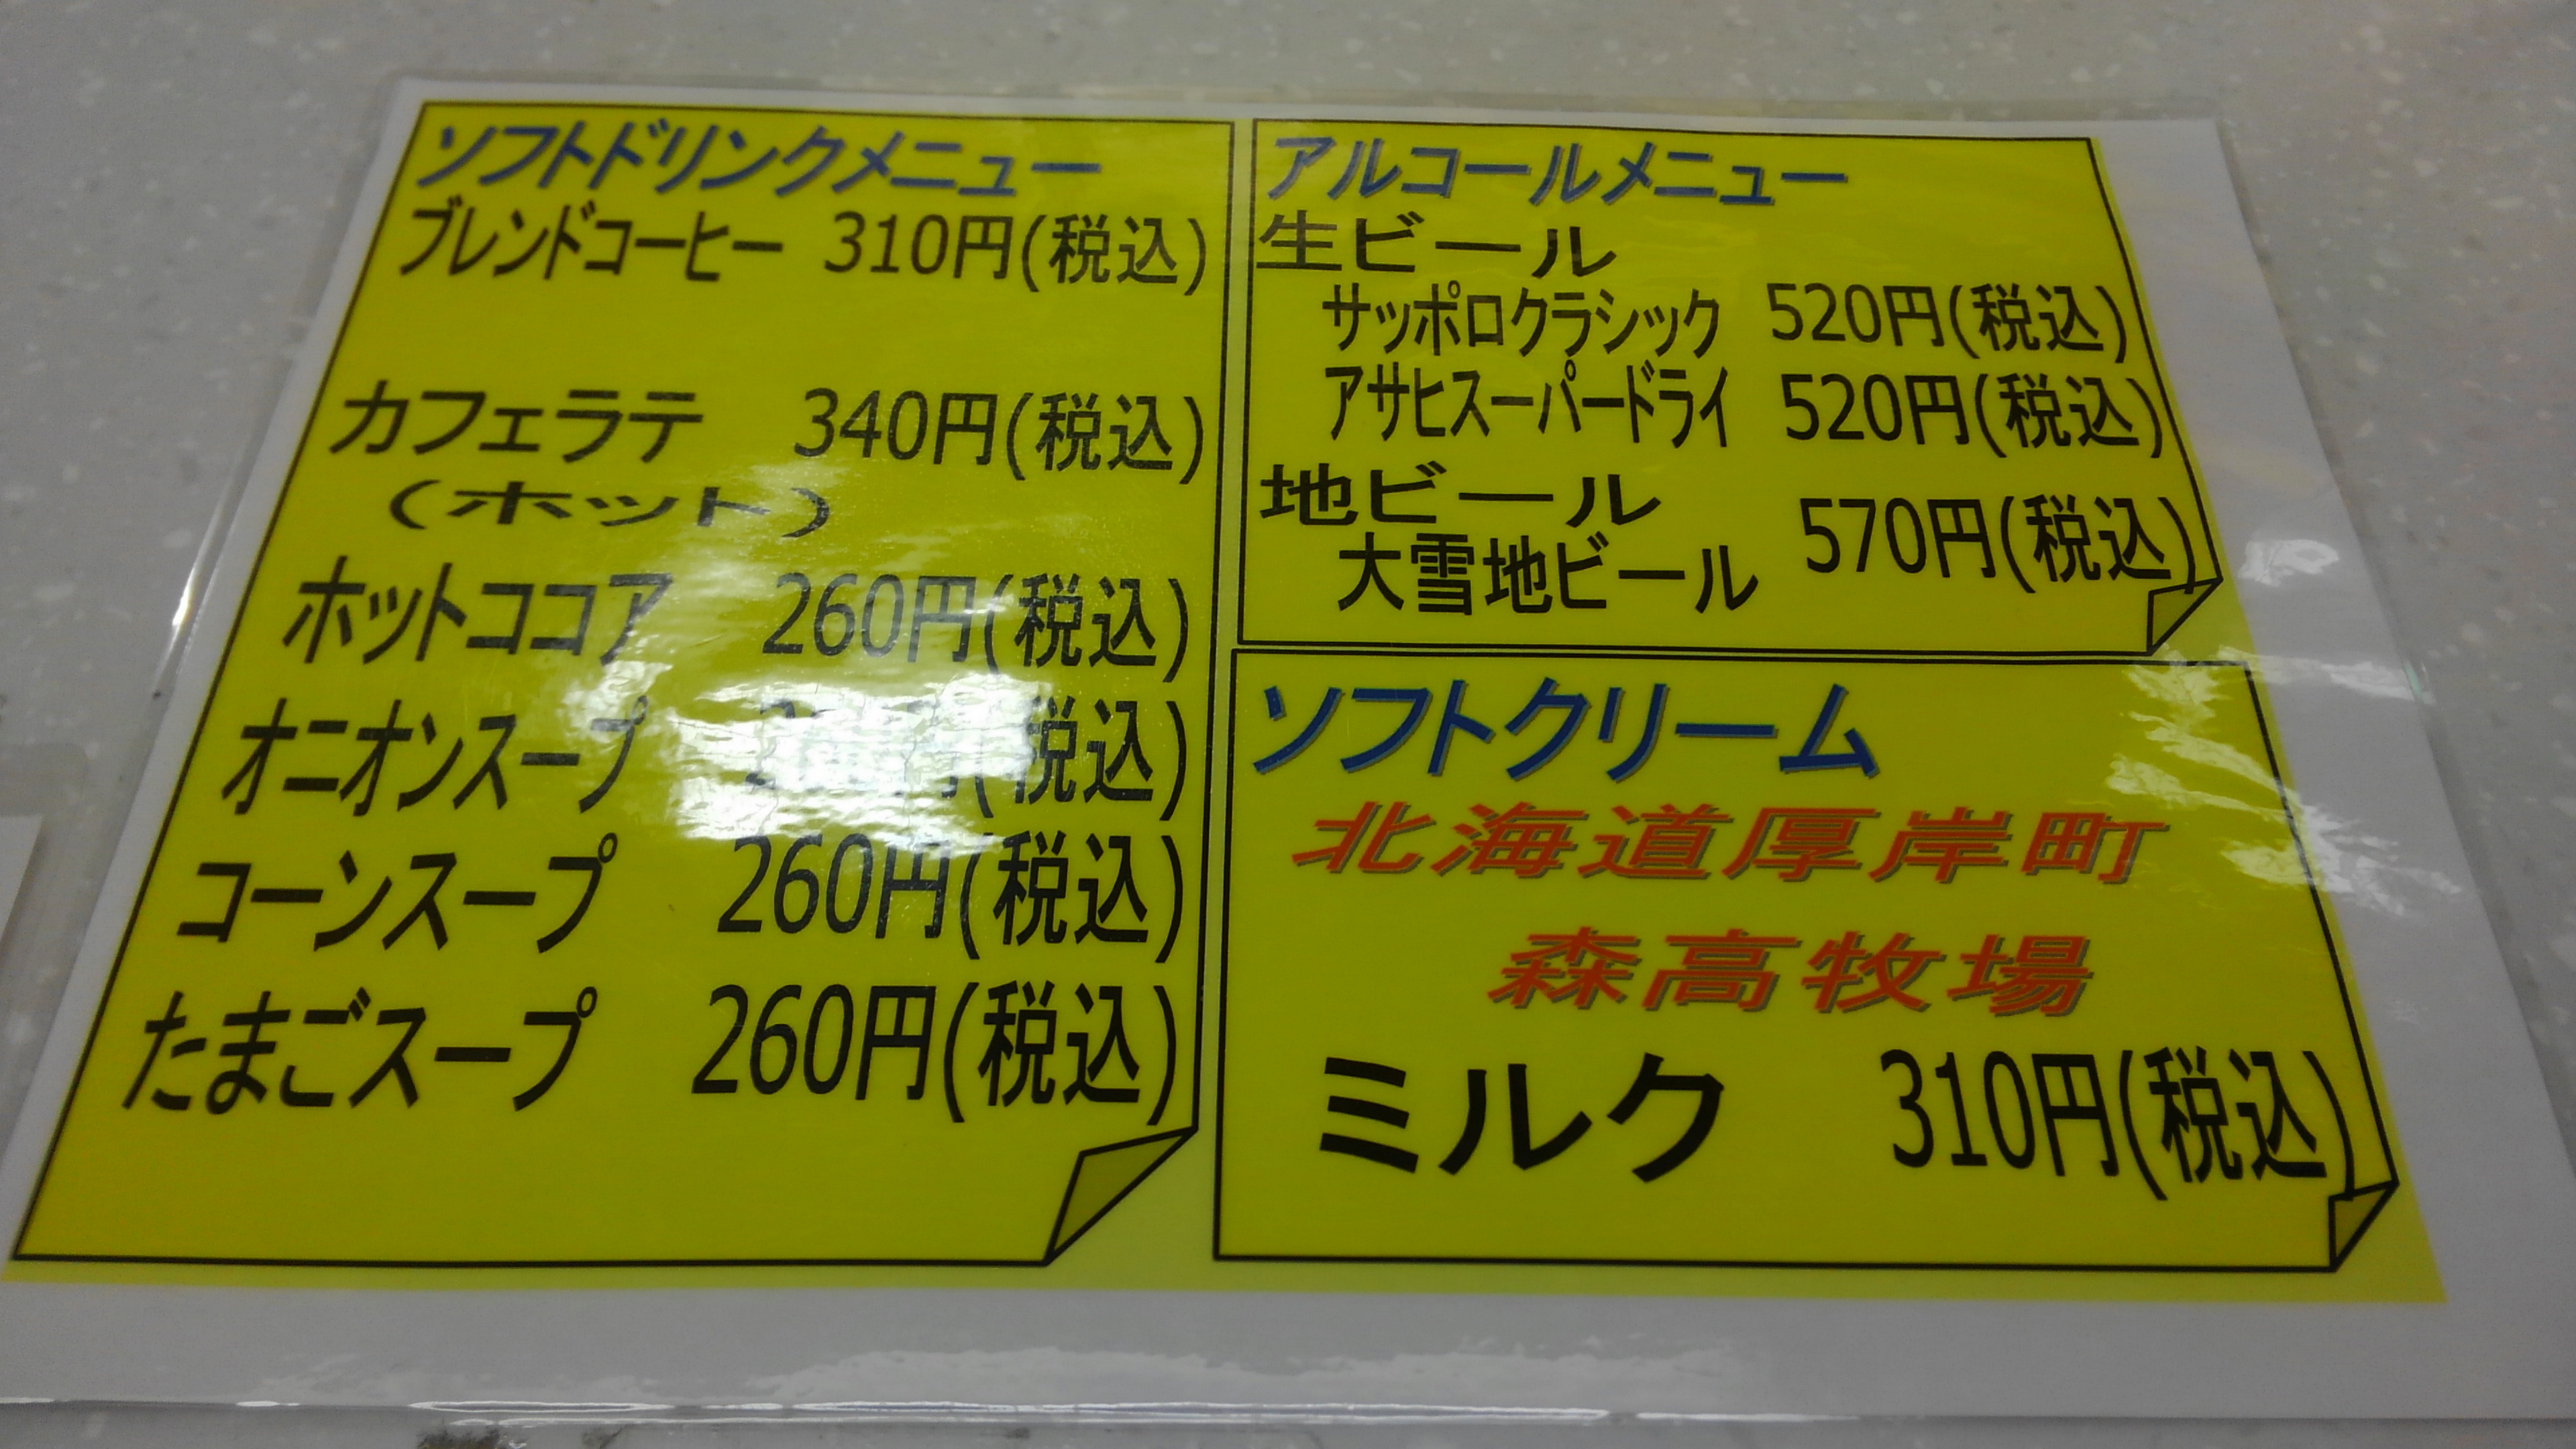 ソフトドリンクメニュー
ブレンドコーヒー 310円(税込)
カフェラテ 340円(税込)
(ホット)
ホットココア 260円(税込)
オニオンスープ 円(税込)
コーンスープ 260円(税込)
たまごスープ 260円(税込)
アルコールメニュー
生ビール
サッポロクラシック 520円(税込)
アサヒスーパードライ 520円(税込)
地ビール
大雪地ビール 570円(税込)
ソフトクリーム
北海道厚岸町
森高牧場
ミルク 310円(税込)